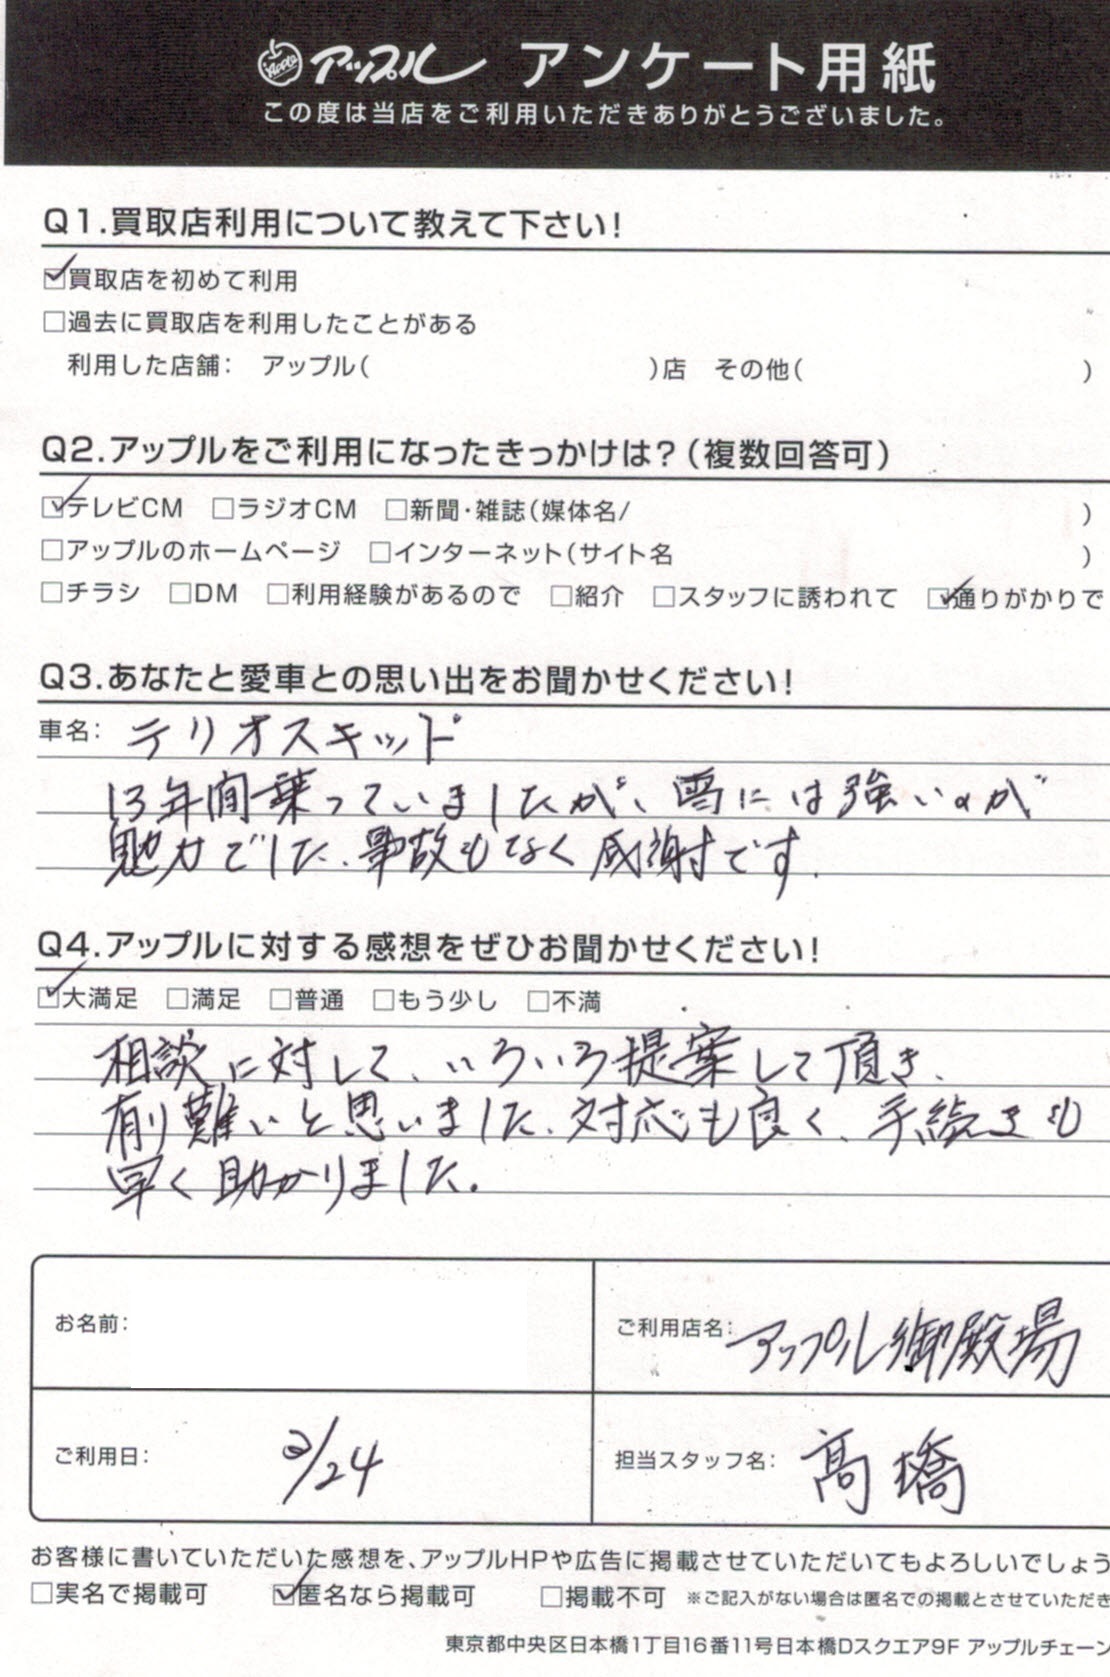 Apple アップル アンケート用紙
この度は当店をご利用いただきありがとうございました。
Q1.買取店利用について教えて下さい!
☑買取店を初めて利用
□過去に買取店を利用したことがある
利用した店舗: アップル( )店 その他( )
Q2.アップルをご利用になったきっかけは?(複数回答可)
☑テレビCM □ラジオCM □新聞・雑誌(媒体名/ )
□アップルのホームページ □インターネット(サイト名 )
□チラシ □DM □利用経験があるので □紹介 □スタッフに誘われて ☑通りがかりで
Q3.あなたと愛車との思い出をお聞かせください!
車名: テリオスキッド
13年間乗っていましたが、雪には強いのが
魅力でした、事故もなく感謝です.
Q4.アップルに対する感想をぜひお聞かせください!
☑大満足 □満足 □普通 □もう少し □不満
相談に対して、いろいろ提案して頂き、
有り難いと思いました、対応も良く、手続きも
早く助かりました.
お名前:
ご利用店名: アップル御殿場
ご利用日: 2/24
担当スタッフ名: 高橋
お客様に書いていただいた感想を、アップルHPや広告に掲載させていただいてもよろしいでしょう
□実名で掲載可 ☑匿名なら掲載可 □掲載不可 ※ご記入がない場合は匿名での掲載とさせていただき
東京都中央区日本橋1丁目16番11号日本橋Dスクエア9F アップルチェーン